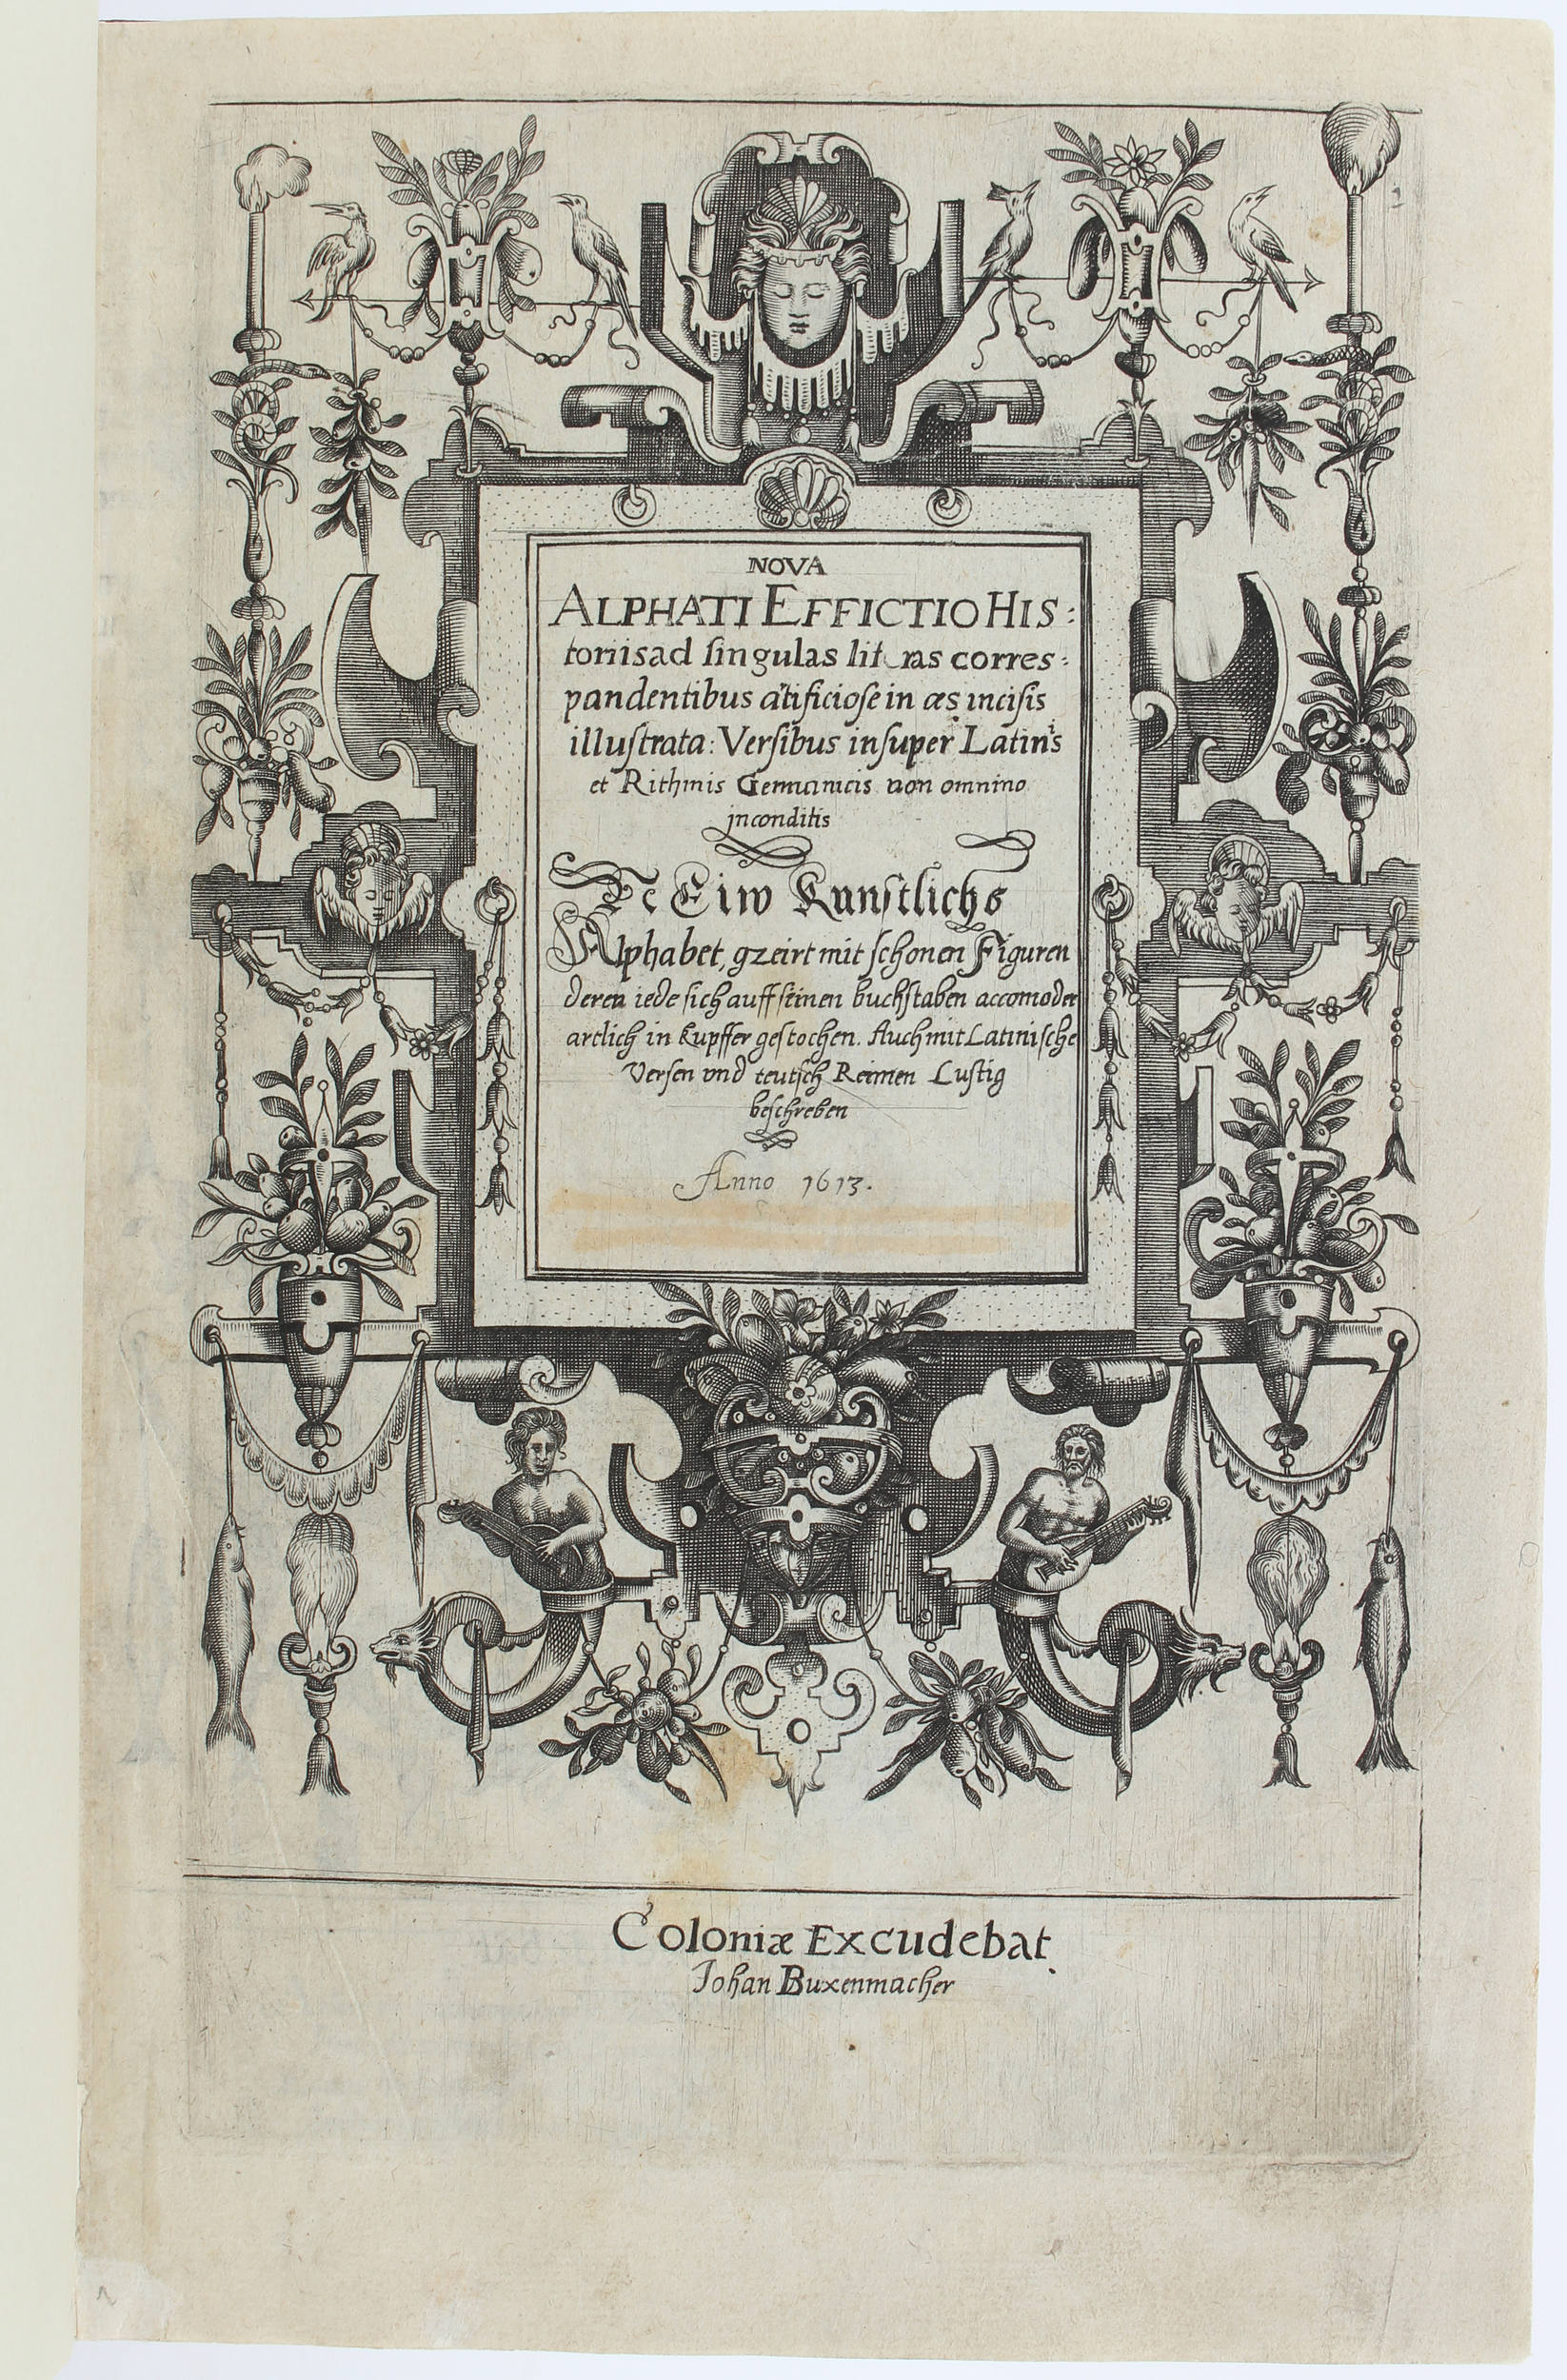 NOVA
ALPHATI EFFICTIO HIS:
toriis ad singulas lit ras corres:
pandentibus atificiose in æs incisis
illustrata: Versibus insuper Latinis
et Rithmis Germanicis non omnino
inconditis
Eiw Kunstlichs
Alphabet, gzeirt mit schonen Figuren
deren iede sich auff seinen buchstaben accomoder
artlich in kupffer gestochen. Auch mit Latinische
Versen vnd teutsch Reimen Lustig
beschreben
Anno 1613.
Coloniæ Excudebat
Johan Buxenmacher